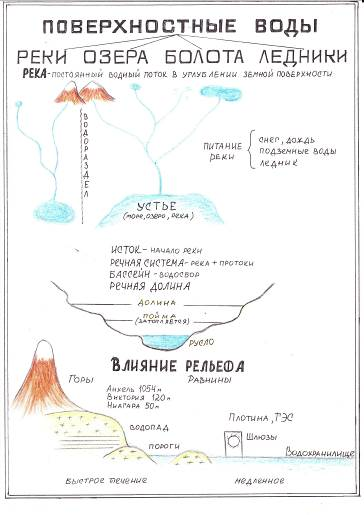 ПОВЕРХНОСТНЫЕ ВОДЫ
РЕКИ ОЗЕРА БОЛОТА ЛЕДНИКИ
РЕКА-ПОСТОЯННЫЙ ВОДНЫЙ ПОТОК В УГЛУБЛЕНИИ ЗЕМНОЙ ПОВЕРХНОСТИ
ВОДОРАЗДЕЛ
ПИТАНИЕ РЕКИ
СНЕГ, ДОЖДЬ
ПОДЗЕМНЫЕ ВОДЫ
ЛЕДНИК
УСТЬЕ
(МОРЕ, ОЗЕРО, РЕКА)
ИСТОК- НАЧАЛО РЕКИ
РЕЧНАЯ СИСТЕМА-РЕКА + ПРОТОКИ
БАССЕЙН - ВОДОСБОР
РЕЧНАЯ ДОЛИНА
ДОЛИНА
ПОЙМА
(ЗАТОПЛЯЕТСЯ)
РУСЛО
ВЛИЯНИЕ РЕЛЬЕФА
ГОРЫ
РАВНИНЫ
АНХЕЛЬ 1054 м
ВИКТОРИЯ 120 м
НИАГАРА 50 м
ПЛОТИНА, ГЭС
ВОДОПАД
ШЛЮЗЫ
ПОРОГИ
ВОДОХРАНИЛИЩЕ
БЫСТРОЕ ТЕЧЕНИЕ
МЕДЛЕННОЕ